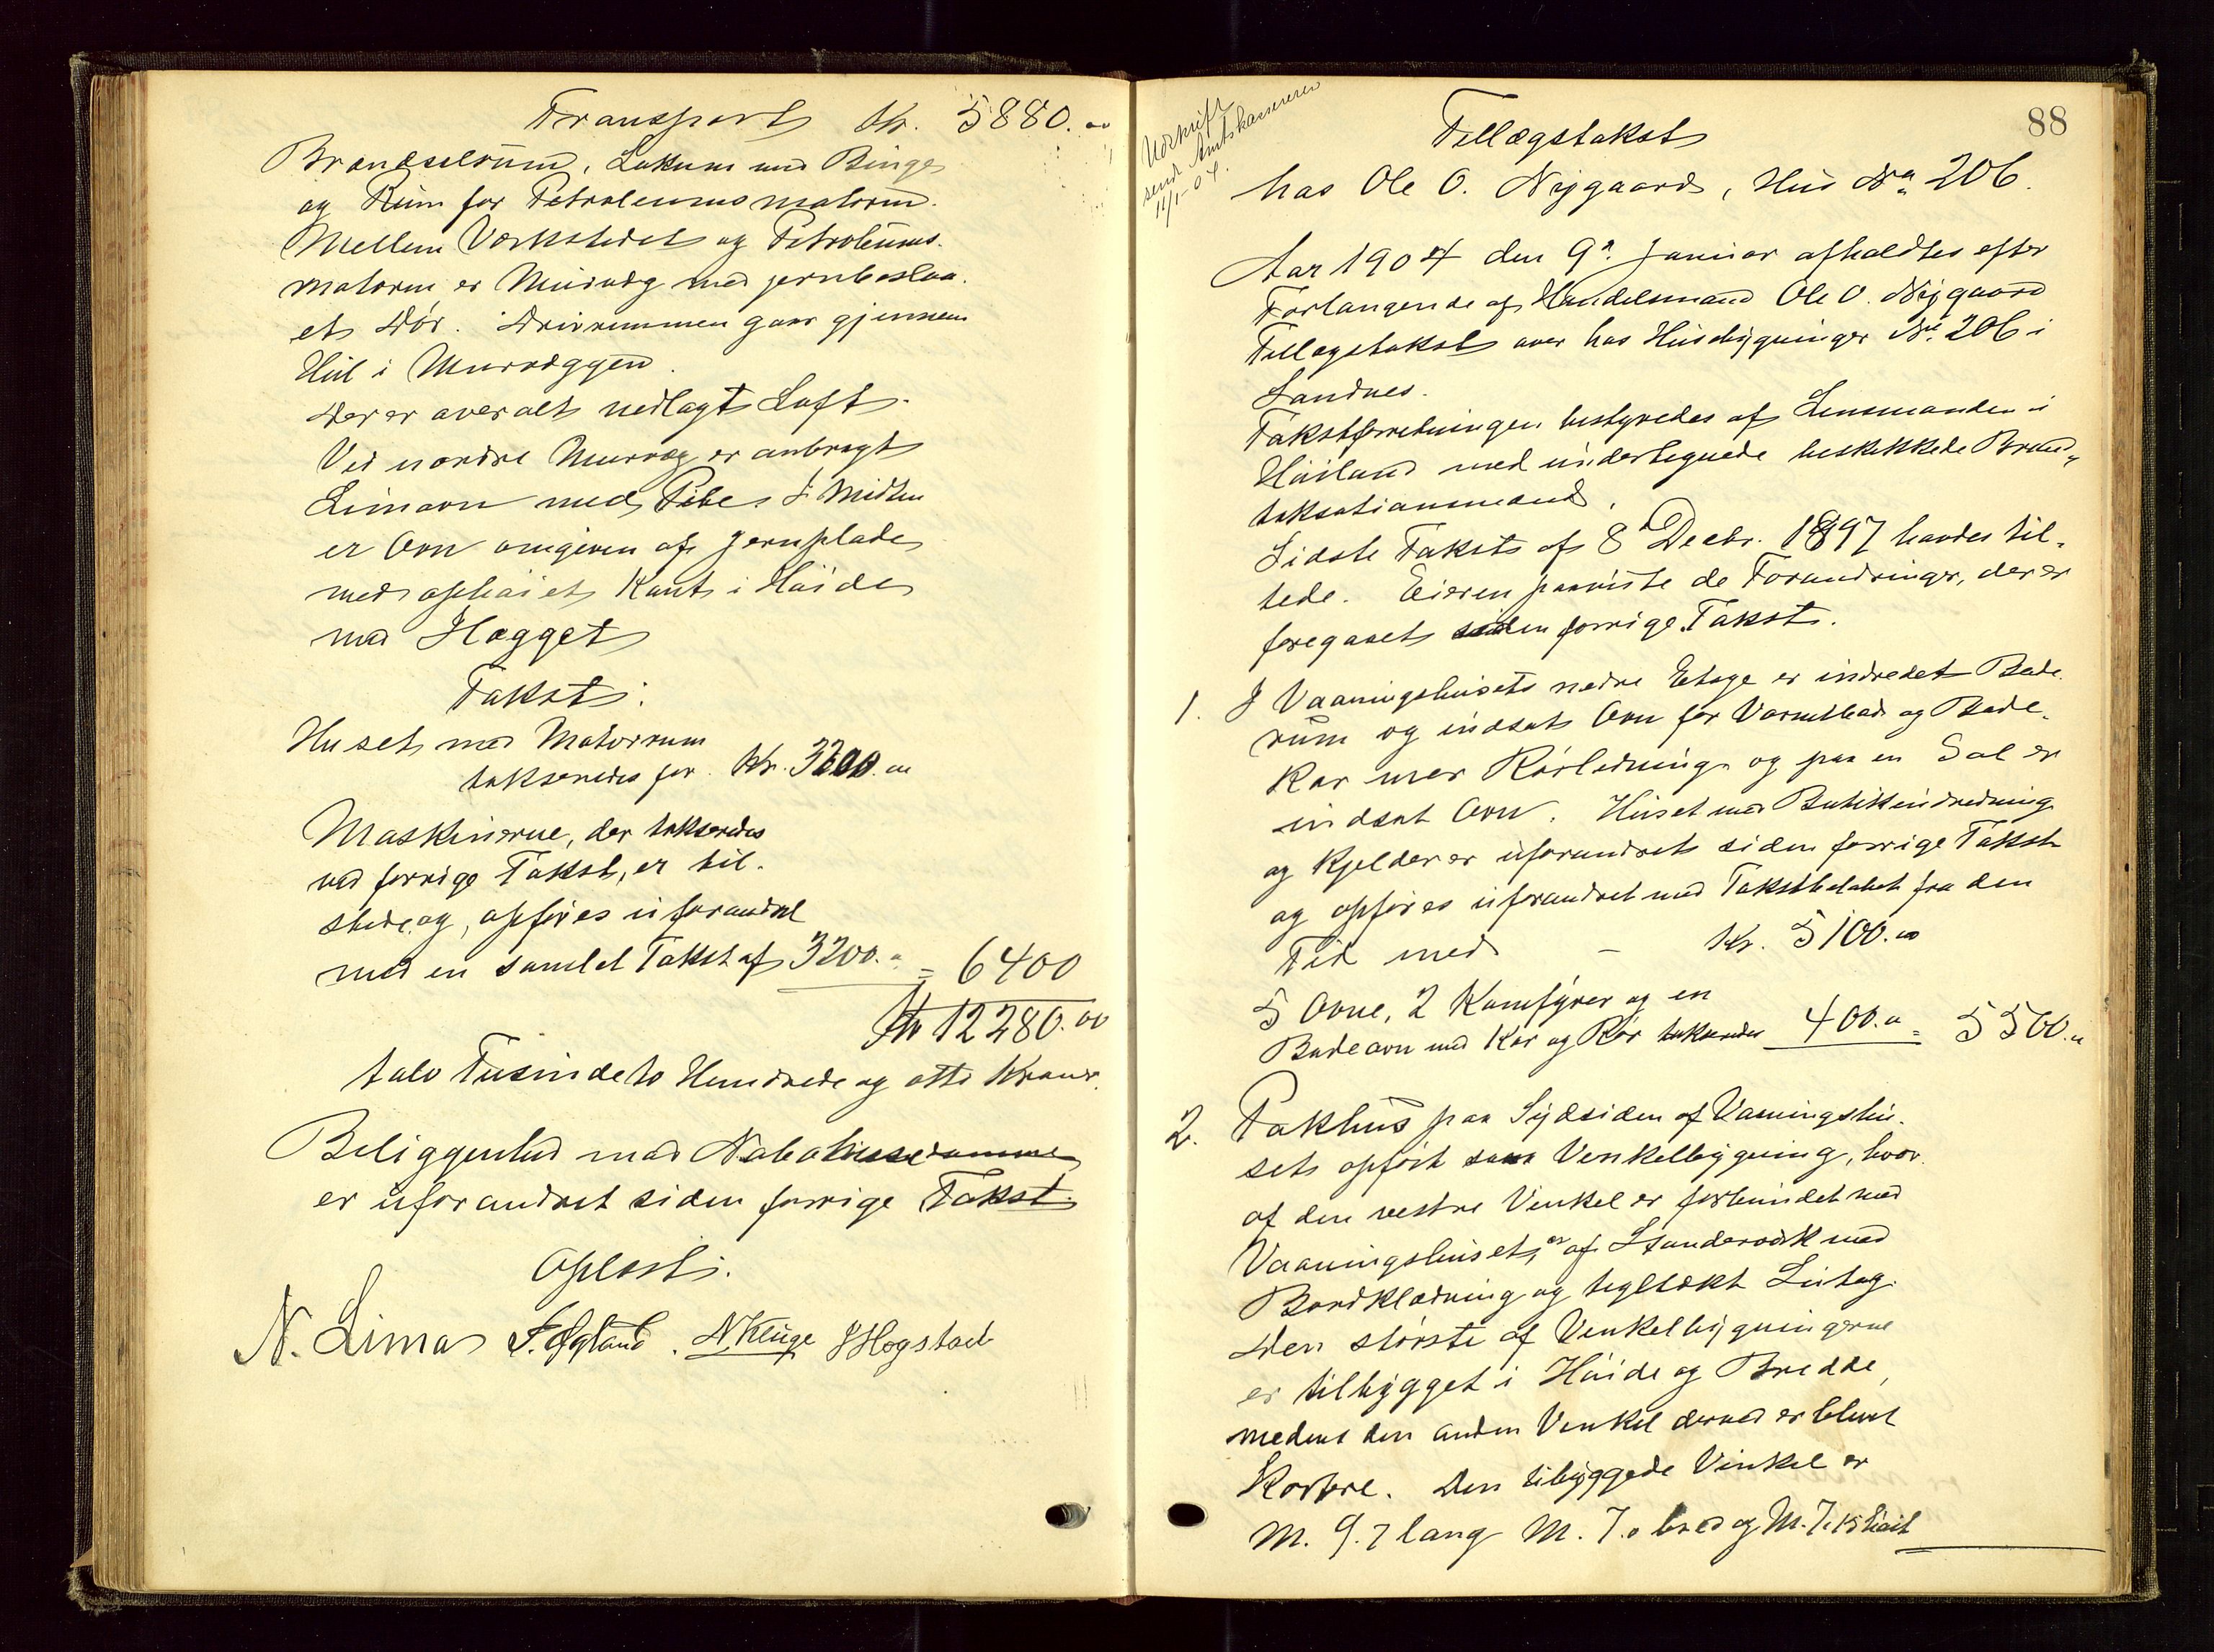 Transport Kr. 5880.00
Brændselrum, Lokum med Binge
og Rum for Petroleumsmotoren.
Mellem Værkstedet og Petroleums-
motoren er Murvæg med jernbeslaa-
et Dør. Drivremmen gaar gjennem
Hul i Murvæggen.
Der er overalt nedlagt Loft.
Ved nordre Murvæg er anbragt
Limovn med Pibe. I Midten
er Ovn omgiven af Jernplade
med ophøiet Kant i Høide
med
Takst:
Huset med Motorrum
takseredes for Kr. 3200.00
Maskinerne, der takseredes
ved forrige Takst, er til-
stede og, opføres uforandret
med en samlet Takst af 3200.00 = 6400
Kr 12280.00
tolv Tusinde to Hundrede og otti Kroner.
Beliggenhed med Nabohusene
er uforandret siden forrige Takst.
Oplæst.
N. Lima F. Øgland. N. Kluge J Hogstad
88
Udskrift
sendt Amtskassereren
11/1-04.
Tillægstakst
hos Ole O. Nygaard, Hus No 206.
Aar 1904 den 9de Januar afholdtes efter
Forlangende af Handelsmand Ole O. Nygaard
Tillægstakst over hos Husebygninger No. 206 i
Sandnes.
Takstforretningen bestyredes af Lensmanden i
Høiland med undertegnede beskikkede Brand-
taksationsmænd.
Sidste Takst af 8de Decbr. 1897 havdes til-
stede. Eieren paaviste de Forandringer, der er
foregaaet siden forrige Takst.
1. I Vaaningshusets nedre Etage er indredet Bade-
rum og indsat Ovn for Varmtbad og Bade-
kar med Rørledning og paa en Sal er
indsat Ovn. Huset med Butikindredning
og Kjelder er uforandret siden forrige Takst
og opføres uforandret med Takstbeløbet fra den
Tid med - Kr. 5100.00
5 Ovne, 2 Komfyrer og en
Badeovn med Kar og Rør takseredes 400.00 = 5500.00
2. Pakhus paa Sydsiden af Vaaningshu-
sets opført som Venkelbygning, hvor-
af den vestre Vinkel er forbundet med
Vaaningshuset, er af Standerværk med
Bordklædning og tegltækt Sutag.
Den største af Venkelbygningerne
er tilbygget i Høide og Bredde,
medens den anden Venkel derved er blevet
Kortere. Den tilbyggede Vinkel er
M. 9.7 lang M. 7.0 bred og M. 7.15 høit